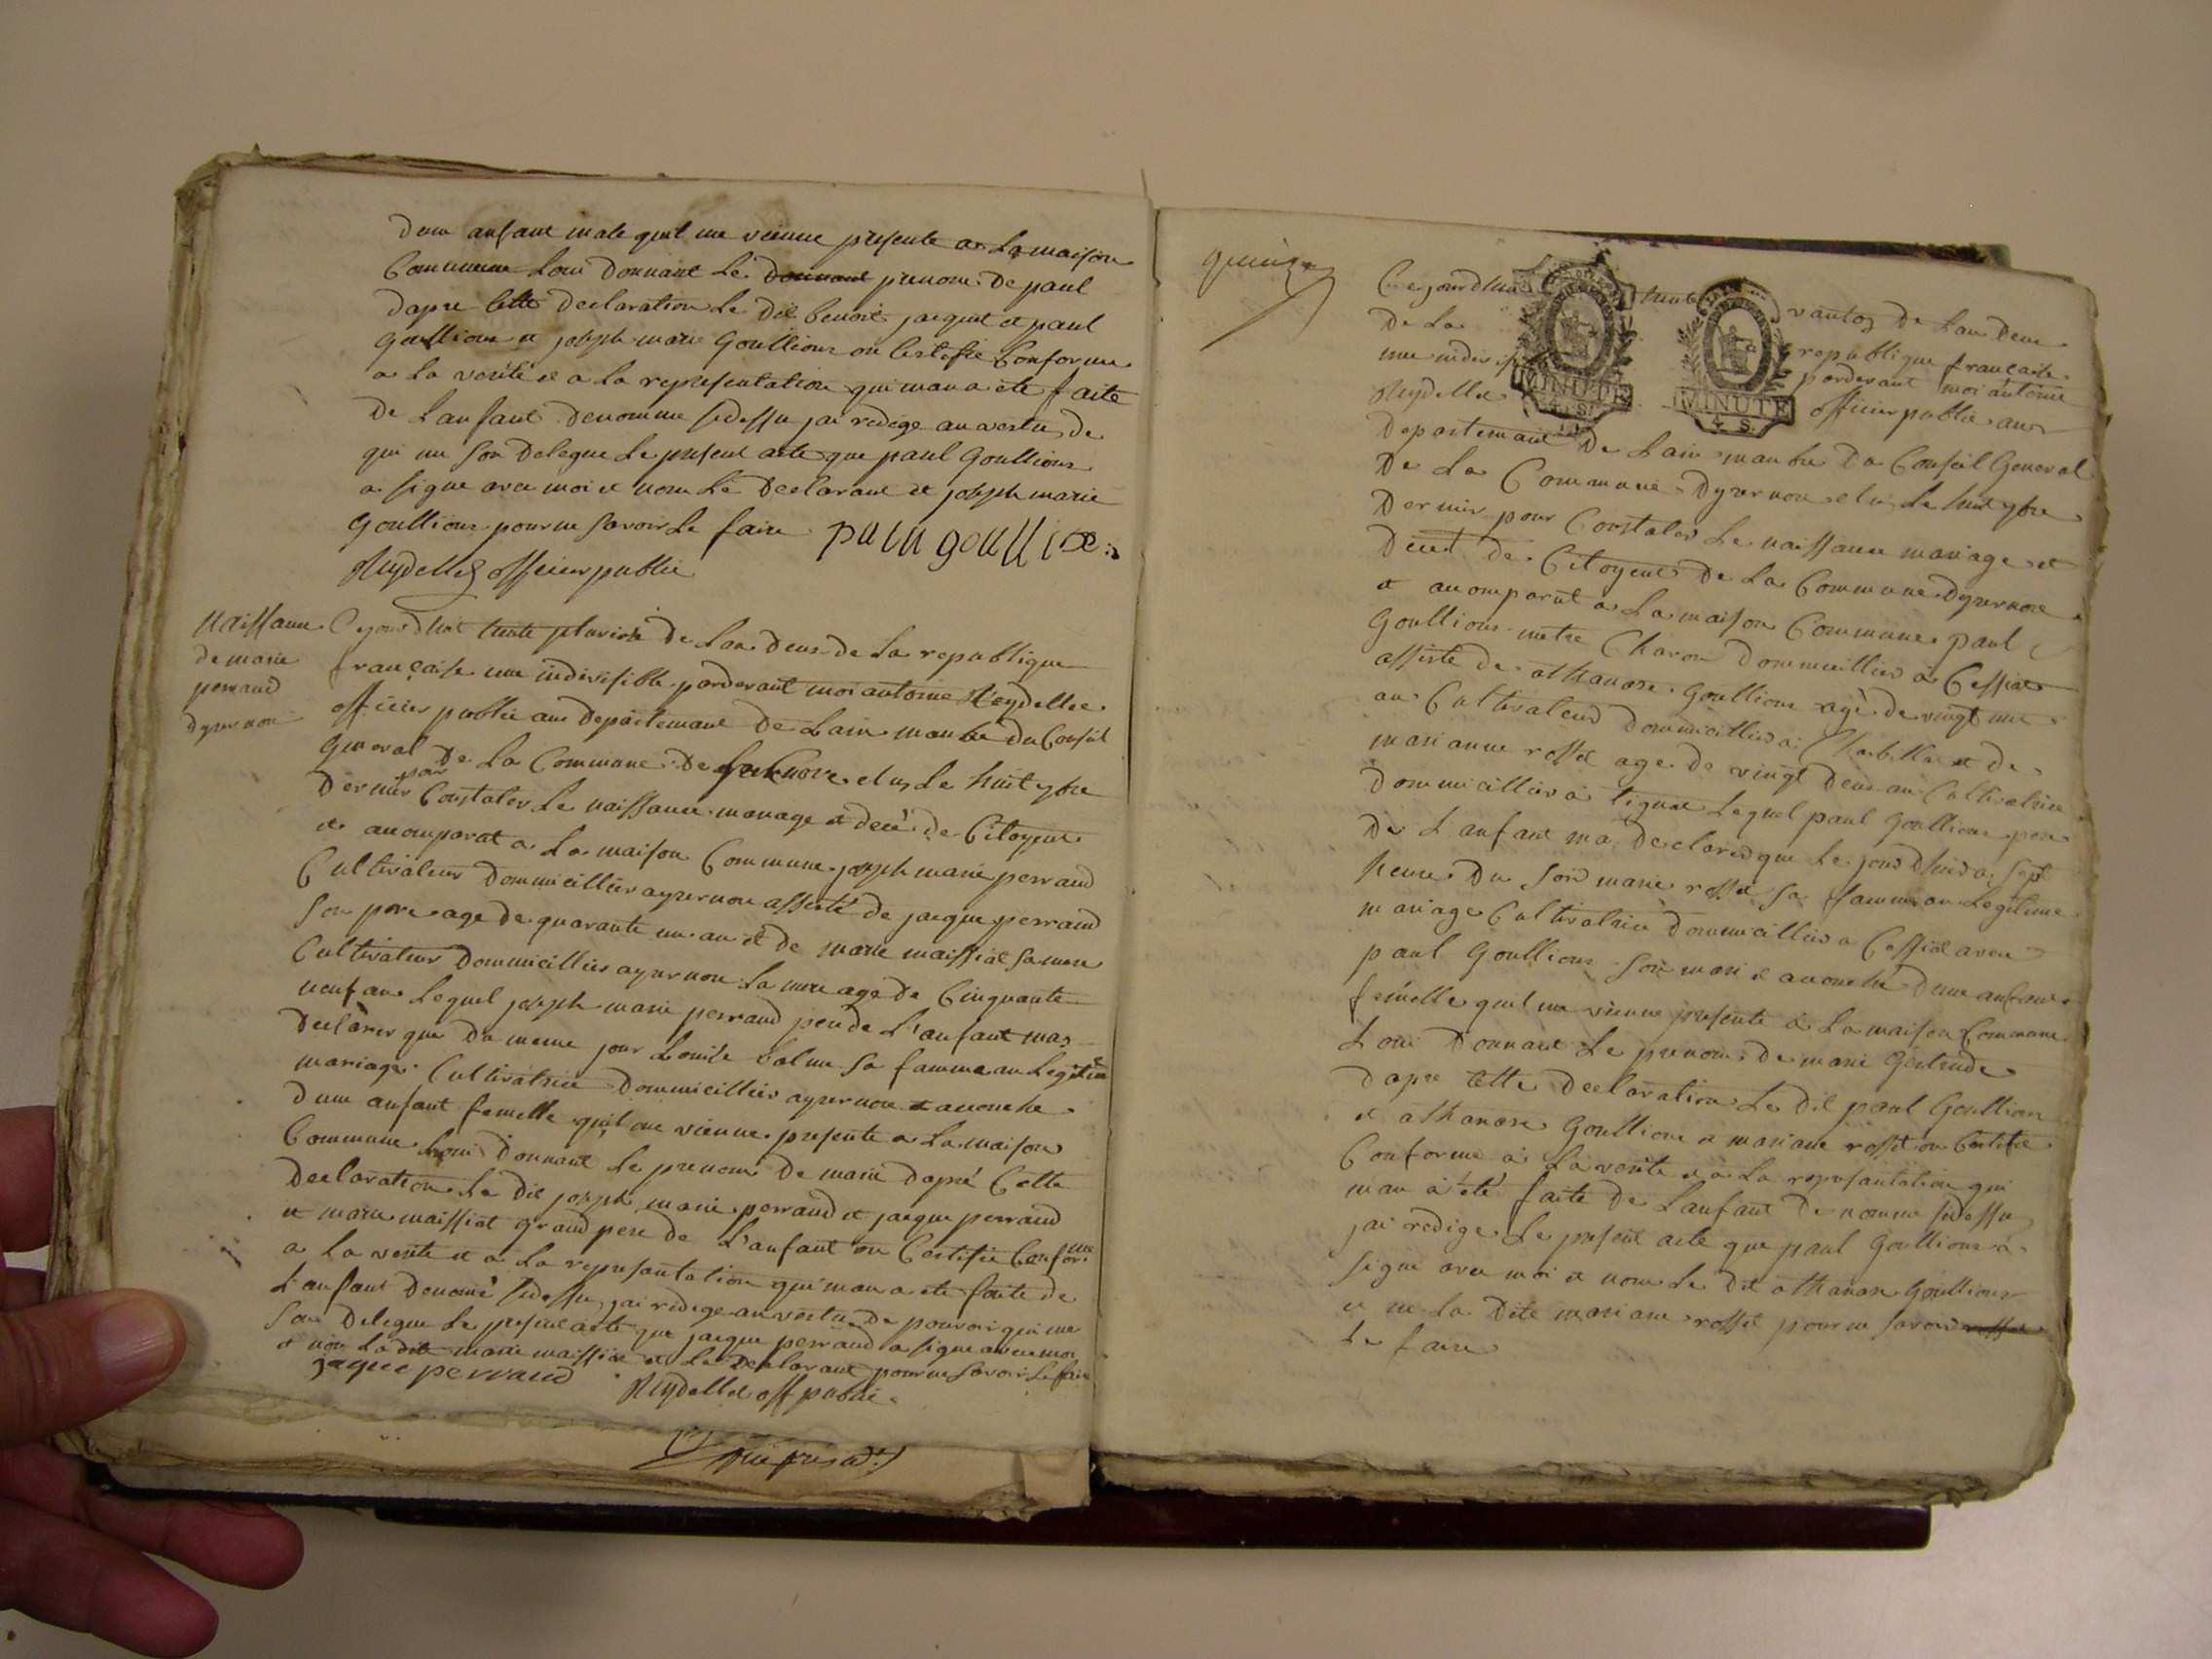 dun anfant male quil me vienne presente a la maison
Commune Loui donnant Le donnant prenom de paul
dapre Cette declaration Le dit benoit jacquet et paul
goullion et joseph marie Goullion on Certifie Conforme
a la verité et a la representation qui man a ete faite
de Lanfant denomme sidessu jai redige an vertu de
qui me son delegue le present acte que paul Goullion
a signe avec moi et non Le declarant et joseph marie
goullion pour ne savoir Le faire paul goullion
Reydellet officier public
Naissance
de marie
perraud
dyzernore
Cejourdhui trente pluviose de Lan deus de la republique
française une indivisible pardevant moi antoine Reydellet
officier public au departemant de Lain manbre du Conseil
general de La Commune de elu Le huit xbre
dernier par Constater Le naissance mariage et decé de Citoyent
et ancomparut a La maison Commune joseph marie perraud
Cultivateur dommicillier ayzernore assisté de jacque perraud
son pere age de quarante un an et de marie maissiat sa mere
Cultivateur dommicillier ayzernore La mere age de Cinquante
neuf an Lequel joseph marie perraud pere de L'anfant mas
declarer que du meme jour Louise balme sa famme an Legitim
mariage Cultivatrice dommicillier ayzernore et acouche
dune anfant femelle quil me vienne presente a La maison
Commune Loui donnant Le prenom de marie dapré Cette
declaration Le dit joseph marie perraud et jacque perraud
et marie maissiat grand pere de L'anfant on Certifie Conforme
a La verite et a La representation qui man a ete faite de
L'anfant denomé sidessu jai redige an vertu de pouvoir qui me
son delegue Le present acte que jacque perraud a signe avec moi
et non La dite marie maissiat et Le declarant pour ne savoir Le faire
jaque perraud Reydellet off public
quinze
Cejourdhui trente vantos de Lan deus
de La republique française
une indivisi pardevant moi antoine
Reydellet officier public au
MINUTE
4. S.
MINUTE
4. S.
departemant de Lain manbre du Conseil General
de La Commune dyzernore elu Le huit xbre
dernier pour Constater Le naissance mariage et
decet de Citoyent de La Commune dyzernore
et ancomparut a La maison Commune paul
Goullion metre Charon dommicillier a Cessiat
assisté de athanase Goullion agé de vingt un
an Cultivateur dommicillier a et de
marianne rosset age de vingt deus an Cultivatrice
dommicillier a tignat Lequel paul Goullion pere
de L'anfant ma declarer que Le jourdhuida sept
heure du soir marie rosset sa famme an Legitime
mariage Cultivatrice dommicillier a Cessiat avec
paul Goullion son mari et acouché dune anfant
femelle quil me vienne presente a La maison Commune
Loui donnant Le prenom de marie gertrude
dapre Cette declaration Le dit paul Goullion
et athanase Goullion et mariane rosset on Certifie
Conforme a La verite et a La representation qui
man a été faite de Lanfant denomme sidessu
jai redige Le present acte que paul Goullion a
signe avec moi et non Le dit athanase Goullion
et ne la dite mariane rosset pour ne savoir
Le faire